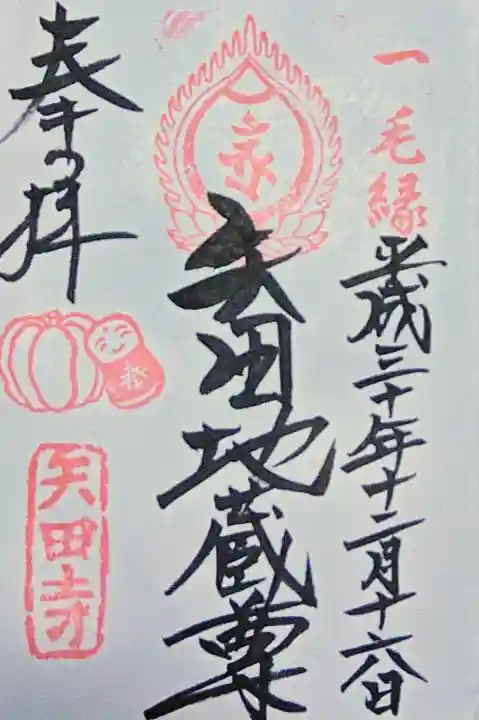 一毛縁
平成三十年十二月十六日
矢田地蔵尊
奉拝
矢田寺